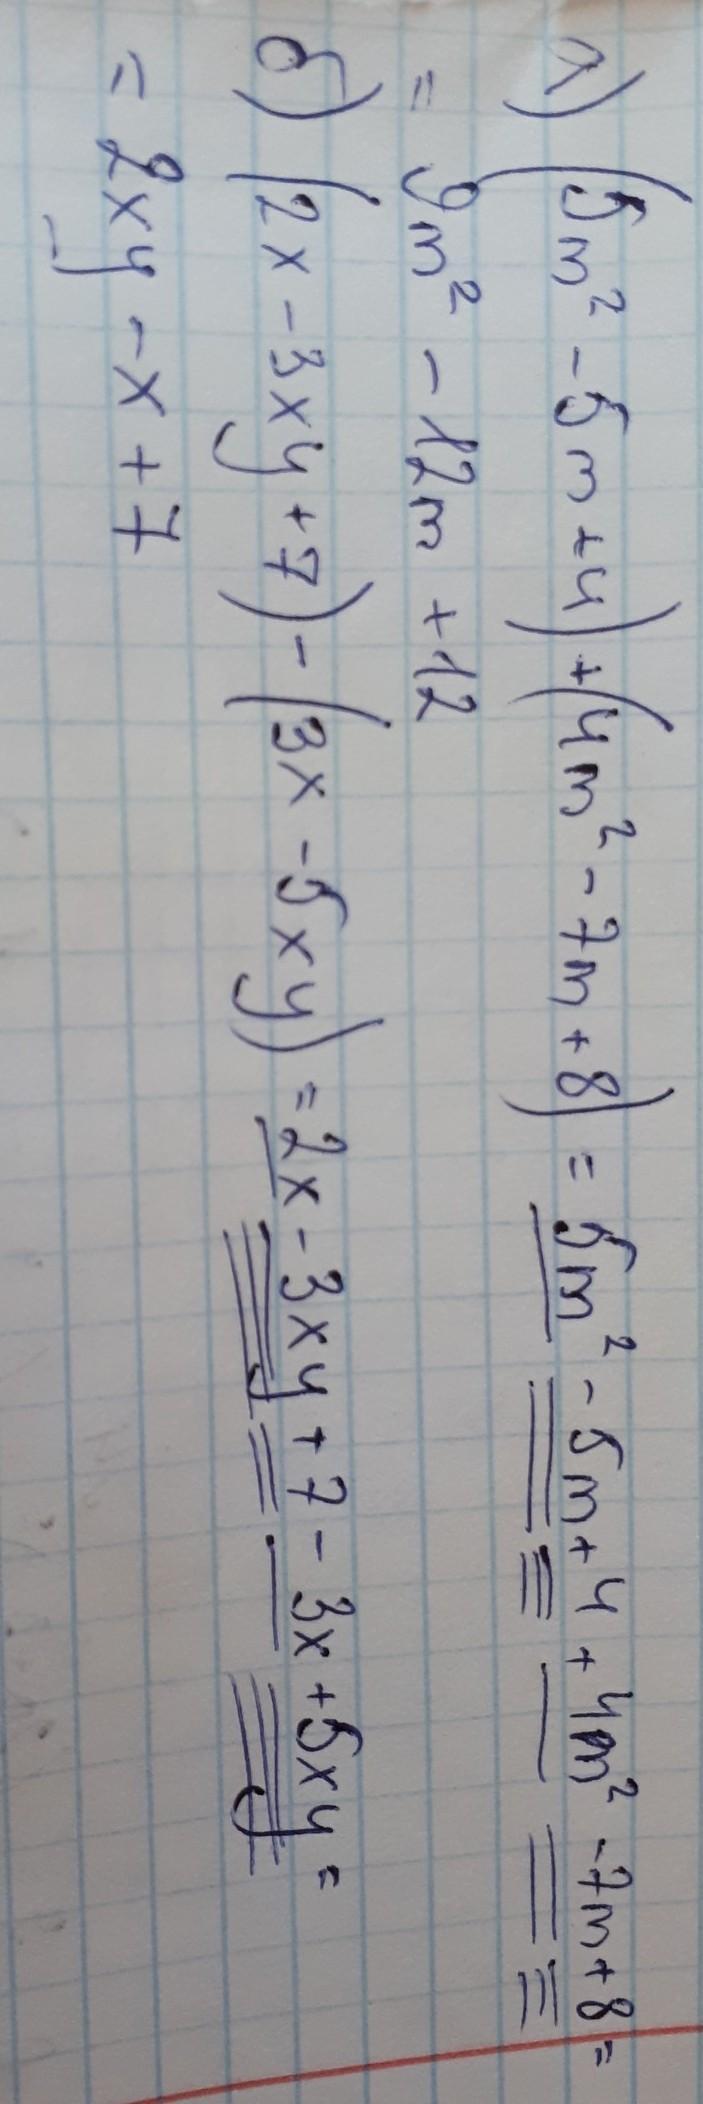 а) (5m² - 5m + 4) + (4m² - 7m + 8) = 5m² - 5m + 4 + 4m² - 7m + 8 =
= 9m² - 12m + 12
б) (2x - 3xy + 7) - (3x - 5xy) = 2x - 3xy + 7 - 3x + 5xy =
= 2xy - x + 7